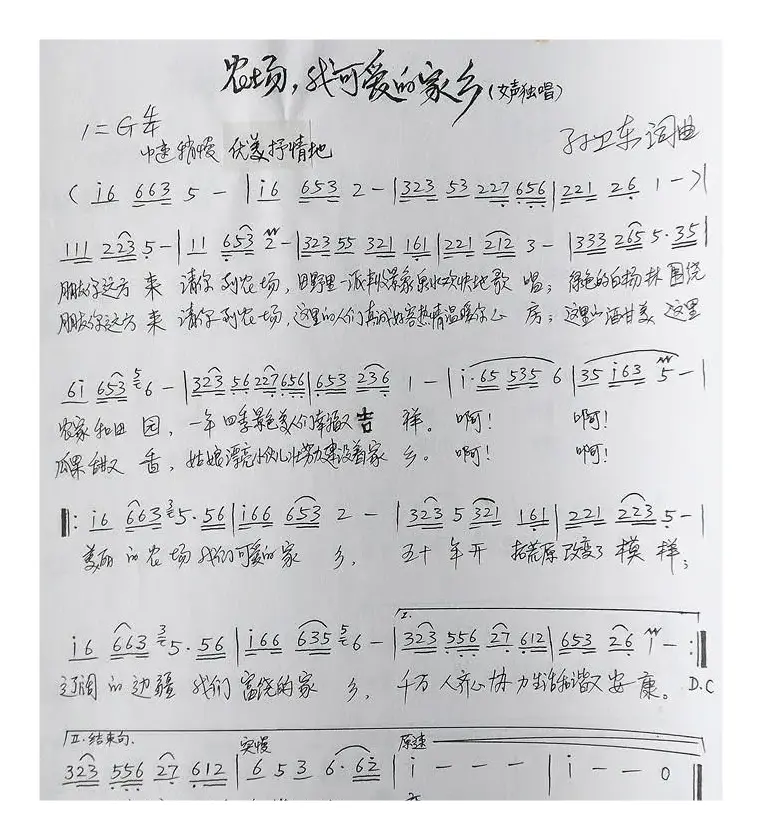 农场，我可爱的家乡(女声独唱)
1=G 4/4
中速稍慢 优美抒情地
孙卫东词曲
( i6 663 5 - | i6 653 2 - | 323 53 227 656 | 221 26 1 - ) |
111 223 5 - | 11 653 2 - | 323 55 321 161 | 221 212 3 - | 333 265 5·35 |
朋友你远方来 请你到农场，田野里一派丰收景象渠水欢快地歌唱；绿色的白杨林围绕
朋友你远方来 请你到农场，这里的人们真诚好客热情温暖你心房；这里山酒甘美 这里
6i 653 5 6 - | 323 56 227 656 | 653 236 1 - | i·65 535 6 | 35 i63 5 - |
农家和田园，一年四季景色美人们幸福又吉祥。啊！啊！
瓜果甜又香，姑娘漂亮小伙儿壮努力建设着家乡。啊！啊！
‖: i6 663 3 5·56 | i66 653 2 - | 323 5 321 161 | 221 223 5 - |
美丽的农场我们可爱的家乡，五十年开拓荒原改变了模样；
i6 663 3 5·56 | i66 635 5 6 - | 1. 323 556 27 612 | 653 26 i - :‖
辽阔的边疆我们富饶的家乡，千万人齐心协力生活和谐又安康。D.C
II.结束句. 突慢 原速
323 556 27 612 | 6 5 3 6·62 | i - - - | i - - 0